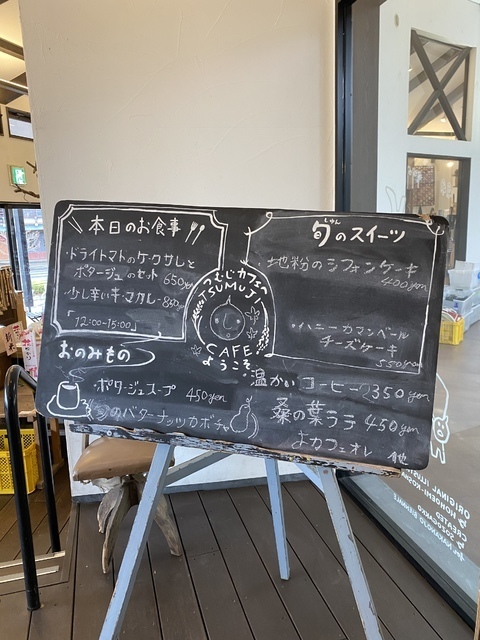 本日のお食事
・ドライトマトのケークサレと
ポタージュのセット 650yen
・少し辛いキーマカレー 850yen
「12:00-15:00」
つむじカフェ
TSUMUJI
CAFE
ようこそ
しゅん
旬のスイーツ
・地粉のシフォンケーキ
400yen
・ハニーカマンベール
チーズケーキ
550yen
おのみもの
・ポタージュスープ 450yen
旬のバターナッツカボチャ
温かいコーヒー 350yen
桑の葉ラテ 450yen
カフェオレ 他
ORIGINAL ILLUS
CREATED
NAKANOJO BIENNALE